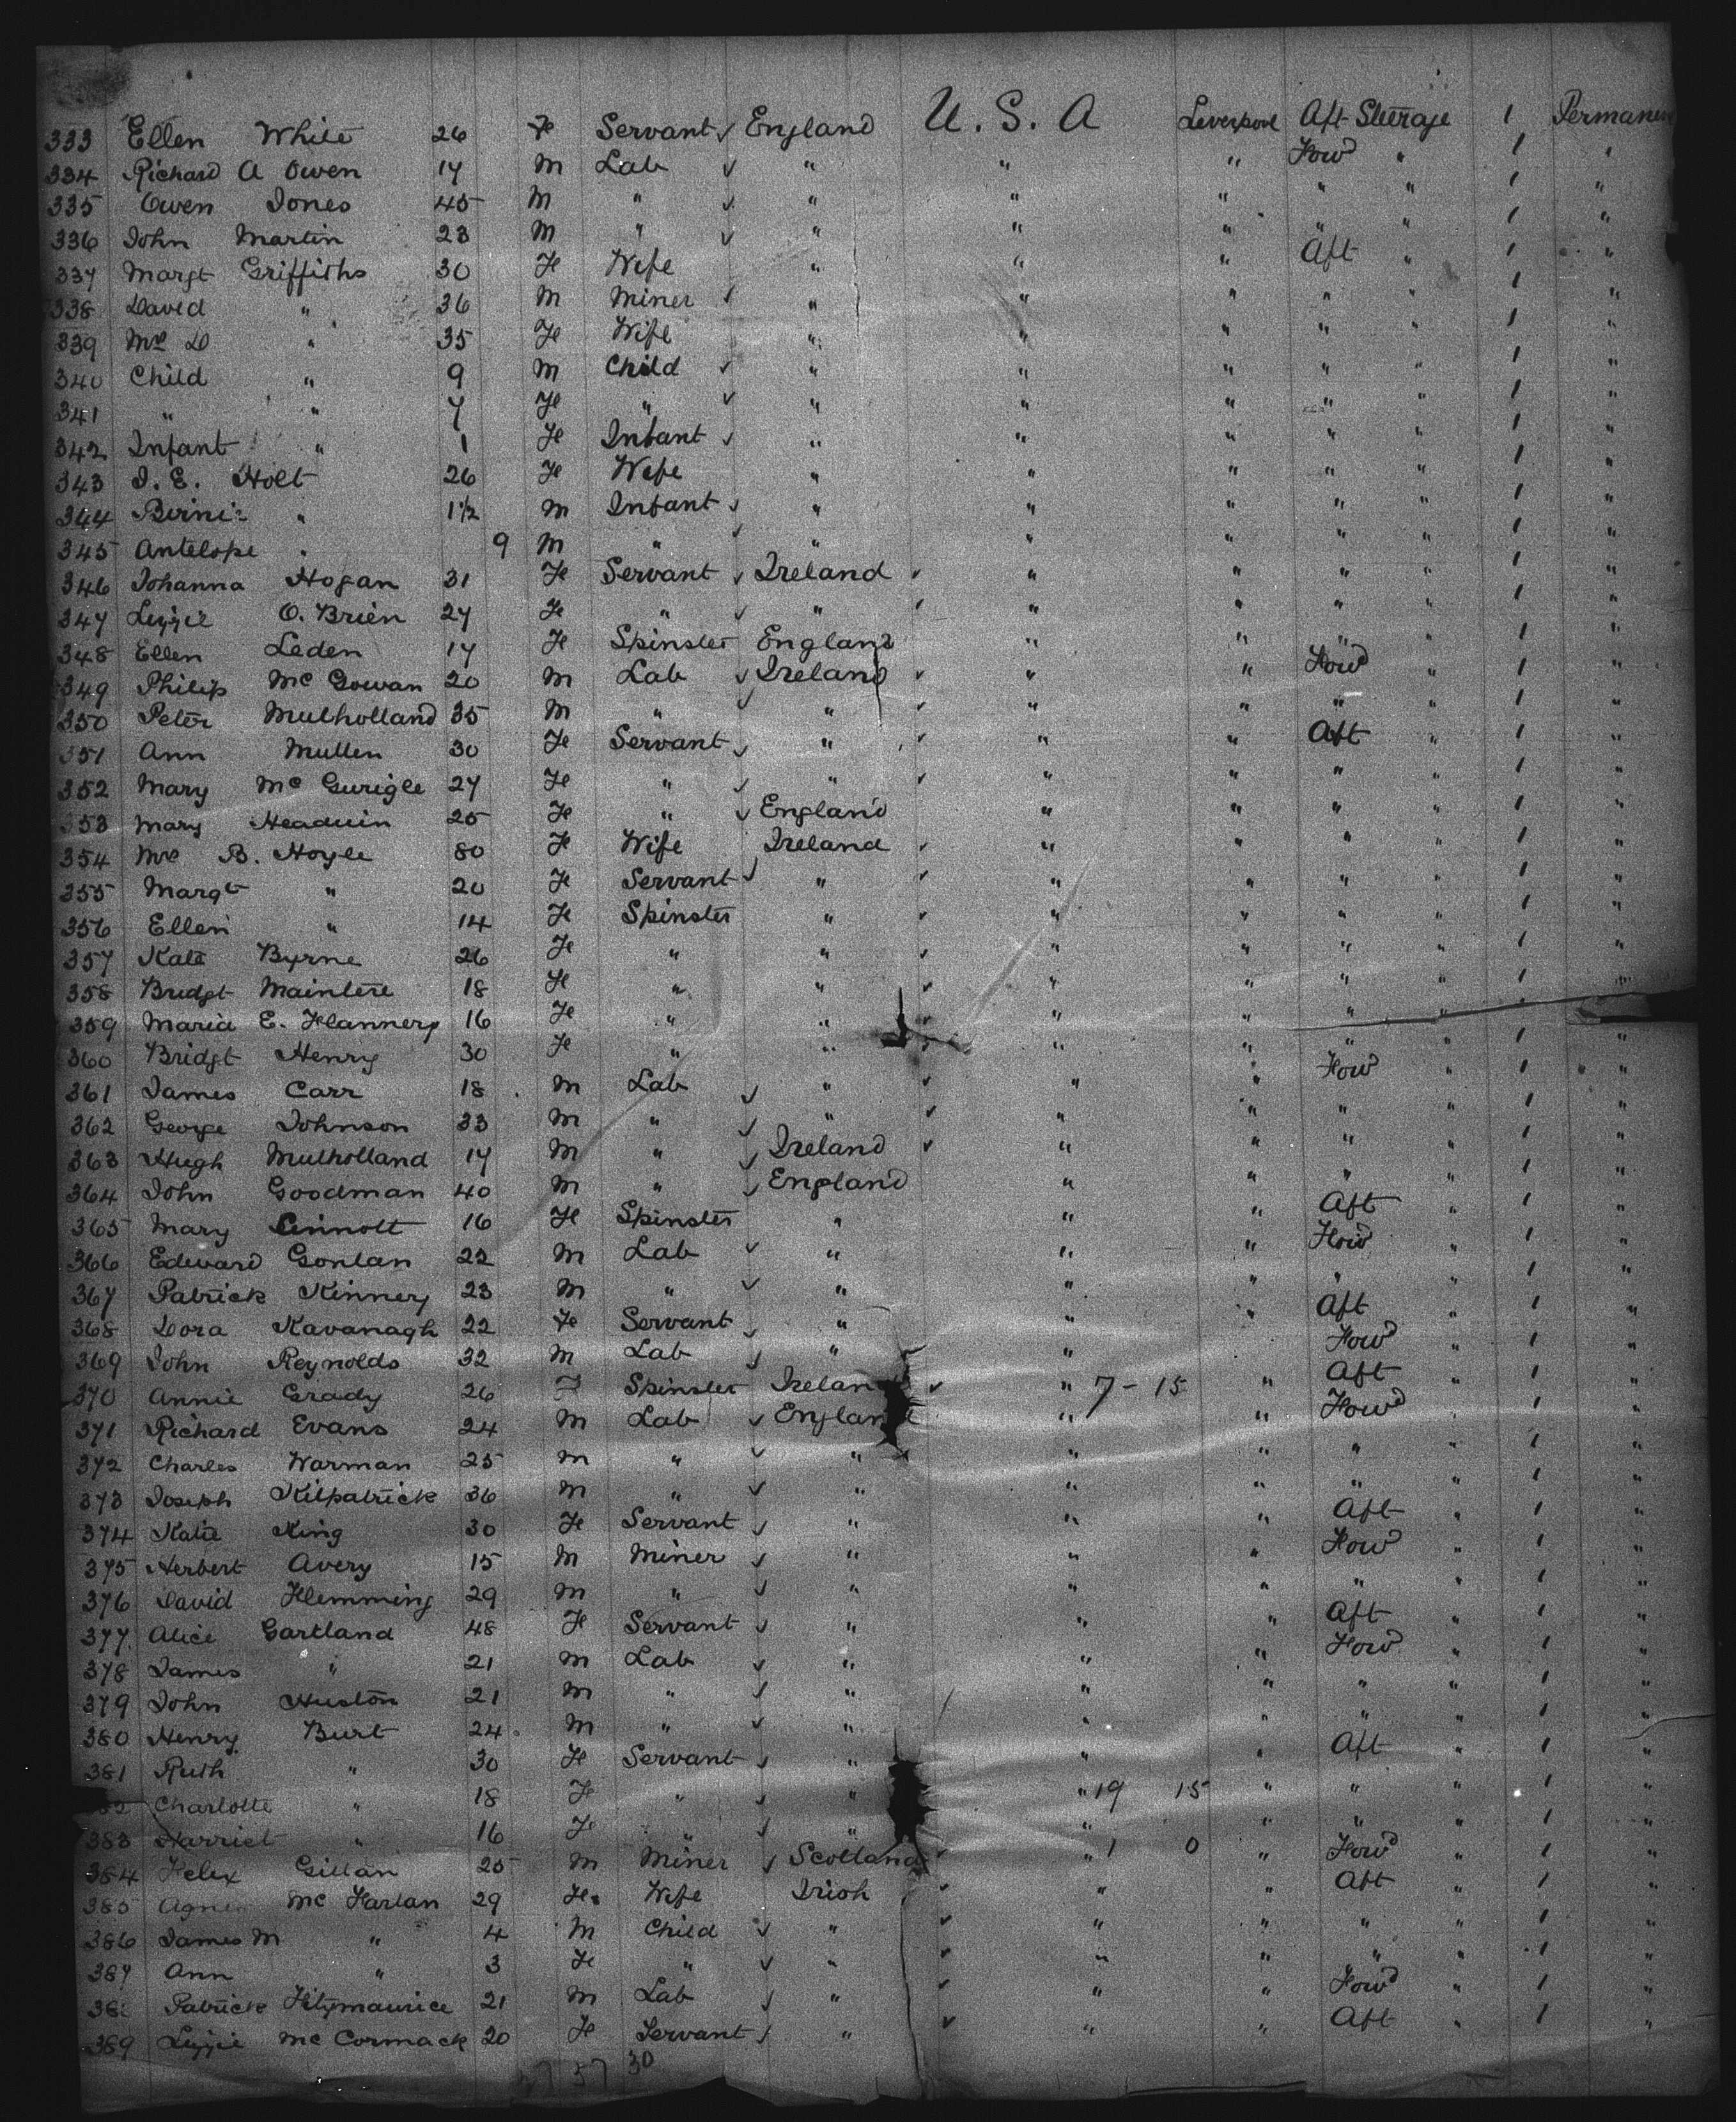 333 Ellen White 26 Fe Servant ✓ England U. S. A Liverpool Aft Steerage 1 Permanen
334 Richard A Owen 17 M Lab ✓ " " " Forwd " 1 "
335 Owen Jones 45 M " ✓ " " " " " 1 "
336 John Martin 23 M " ✓ " " " " " 1 "
337 Margt Griffiths 30 Fe Wife " " " Aft " 1 "
338 David " 36 M Miner ✓ " " " " " 1 "
339 Mrs D " 35 Fe Wife " " " " " 1 "
340 Child " 9 M Child ✓ " " " " " 1 "
341 " " 7 Fe " ✓ " " " " " 1 "
342 Infant " 1 Fe Infant ✓ " " " " " 1 "
343 I. E. Holt 26 Fe Wife " " " " " 1 "
344 " 1½ M Infant ✓ " " " " " 1 "
345 Antelope " 9 M " ✓ " " " " " 1 "
346 Johanna Hogan 31 Fe Servant ✓ Ireland ✓ " " " " 1 "
347 Lizzie O. Brien 27 Fe " ✓ " ✓ " " " " 1 "
348 Ellen Leden 17 Fe Spinster England " " " " 1 "
349 Philip Mc Gowan 20 M Lab ✓ Ireland ✓ " " Forwd " 1 "
350 Peter Mulholland 35 M " ✓ " ✓ " " " " 1 "
351 Ann Mullen 30 Fe Servant ✓ " ✓ " " Aft " 1 "
352 Mary Mc Gurigle 27 Fe " ✓ " ✓ " " " " 1 "
353 Mary Headuin 25 Fe " ✓ England " " " " 1 "
354 Mrs B. Hoyle 80 Fe Wife Ireland ✓ " " " " 1 "
355 Margt " 20 Fe Servant ✓ " ✓ " " " " 1 "
356 Ellen " 14 Fe Spinster " ✓ " " " " 1 "
357 Kate Byrne 26 Fe " " ✓ " " " " 1 "
358 Bridgt Maintere 18 Fe " " ✓ " " " " 1 "
359 Maria E. Flannery 16 Fe " " ✓ " " " " 1 "
360 Bridgt Henry 30 Fe " " ✓ " " " " 1 "
361 James Carr 18 M Lab ✓ " ✓ " " Forwd " 1 "
362 George Johnson 33 M " ✓ " ✓ " " " " 1 "
363 Hugh Mulholland 17 M " ✓ Ireland ✓ " " " " 1 "
364 John Goodman 40 M " ✓ England " " " " 1 "
365 Mary Sinnott 16 Fe Spinster " " " Aft " 1 "
366 Edward Gonlan 22 M Lab ✓ " " " Forwd " 1 "
367 Patrick Kinnery 23 M " ✓ " " " " " 1 "
368 Dora Kavanagh 22 Fe Servant ✓ " " " Aft " 1 "
369 John Reynolds 32 M Lab ✓ " " " Forwd " 1 "
370 Annie Grady 26 F Spinster Irelan ✓ " 7 - 15 " Aft " 1 "
371 Richard Evans 24 M Lab ✓ Englan " " Forwd " 1 "
372 Charles Warman 25 M " ✓ " " " " " 1 "
373 Joseph Kilpatrick 36 M " ✓ " " " " " 1 "
374 Katie King 30 Fe Servant ✓ " " " Aft " 1 "
375 Herbert Avery 15 M Miner ✓ " " " Forwd " 1 "
376 David Flemming 29 M " ✓ " " " " " 1 "
377 Alice Gartland 48 Fe Servant ✓ " " " Aft " 1 "
378 James " 21 M Lab ✓ " " " Forwd " 1 "
379 John Huston 21 M " ✓ " " " " " 1 "
380 Henry Burt 24 M " ✓ " " " " " 1 "
381 Ruth " 30 Fe Servant ✓ " " " Aft " 1 "
82 Charlotte " 18 Fe " ✓ " " 19 15 " " " 1 "
383 Harriet " 16 Fe " ✓ " " " " " 1 "
384 Felix Gillan 25 M Miner ✓ Scotland ✓ " 1 0 " Forwd " 1 "
385 Agnes Mc Farlan 29 Fe Wife Irish ✓ " " Aft " 1 "
386 James M " 4 M Child ✓ " ✓ " " " " 1 "
387 Ann " 3 Fe " ✓ " ✓ " " " " 1 "
38 Patrick Fitzmaurice 21 M Lab ✓ " ✓ " " Forwd " 1 "
389 Lizzie Mc Cormack 20 Fe Servant ✓ " ✓ " " Aft " 1 "
57 30